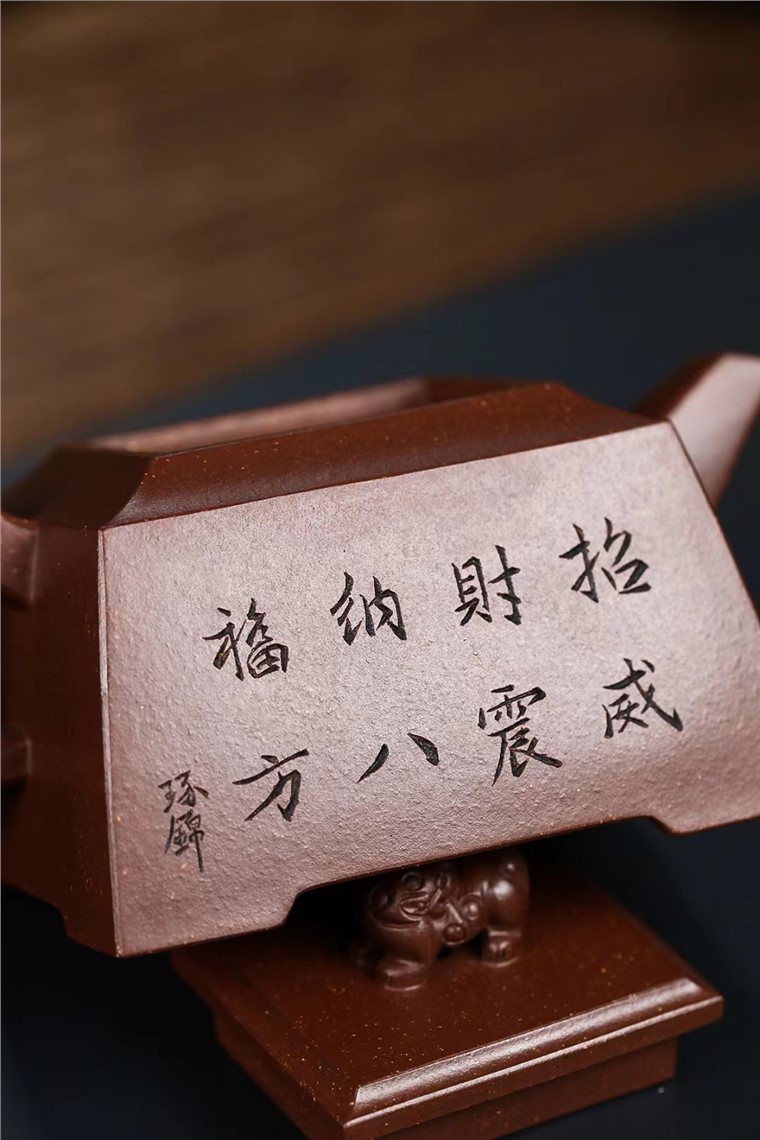 招財納福
威震八方
琢錦